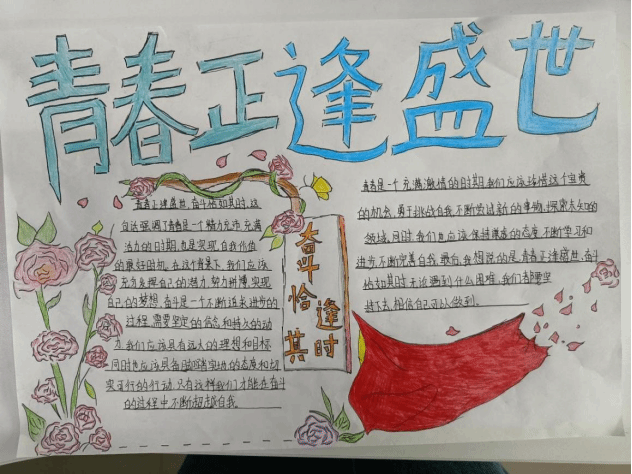 青春正逢盛世
青春正逢盛世,奋斗恰如其时,这
句话强调了青春是一个精力充沛,充满
活力的时期,也是实现自我价值
的最好时机,在这个背景下,我们应该
充分发挥自己的潜力,努力拼搏,实现
自己的梦想,奋斗是一个不断追求进步的
过程,需要坚定的信念和持久的动
力,我们应该具有远大的理想和目标
同时也应该具备脚踏实地的态度和切
实可行的行动,只有这样我们才能在奋斗
的过程中不断超越自我。
奋斗恰
逢其时
青春是一个充满激情的时期,我们应该珍惜这个宝贵
的机会,勇于挑战自我,不断尝试新的事物,探索未知的
领域,同时,我们也应该保持谦虚的态度,不断学习和
进步,不断完善自我,最后,我想说的是,青春正逢盛世,奋斗
恰如其时,无论遇到什么困难,我们都要坚
持下去,相信自己可以做到。